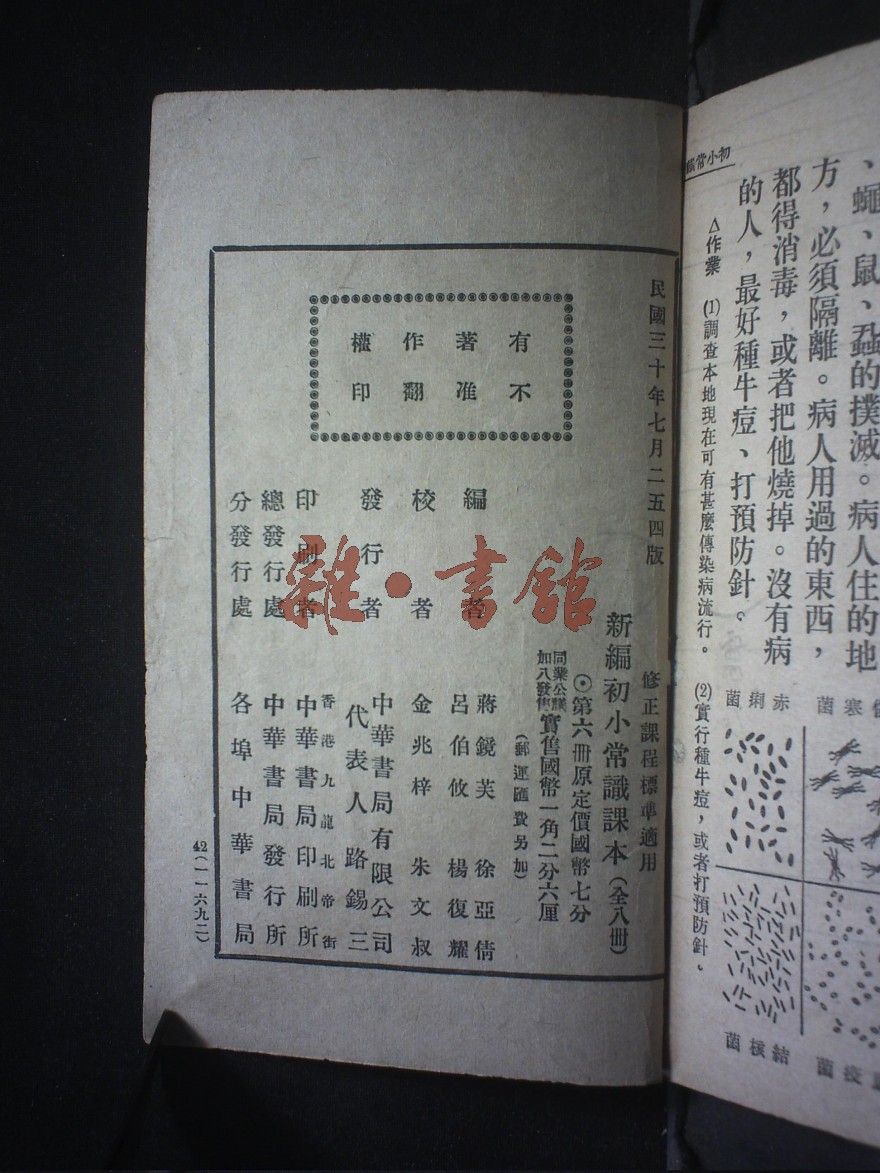 初小常
、蠅、鼠、蝨的撲滅。病人住的地
方，必須隔離。病人用過的東西，
都得消毒，或者把他燒掉。沒有病
的人，最好種牛痘、打預防針。
△作業　⑴調查本地現在可有甚麼傳染病流行。　⑵實行種牛痘，或者打預防針。
寒菌
赤痢菌
疫菌
結核菌
民國三十年七月二五四版
有不
著准
作翻
權印
修正課程標準適用
新編初小常識課本（全八冊）
⊙第六冊原定價國幣七分
同業公議
加八發售
實售國幣一角二分六厘
（郵運匯費另加）
編者　蔣鏡芙　徐亞倩
呂伯攸　楊復耀
校者　金兆梓　朱文叔
發行者　中華書局有限公司
代表人　路錫三
印刷者　香港九龍北帝街
中華書局印刷所
總發行處　中華書局發行所
分發行處　各埠中華書局
42（一一六九二）
雜·書館